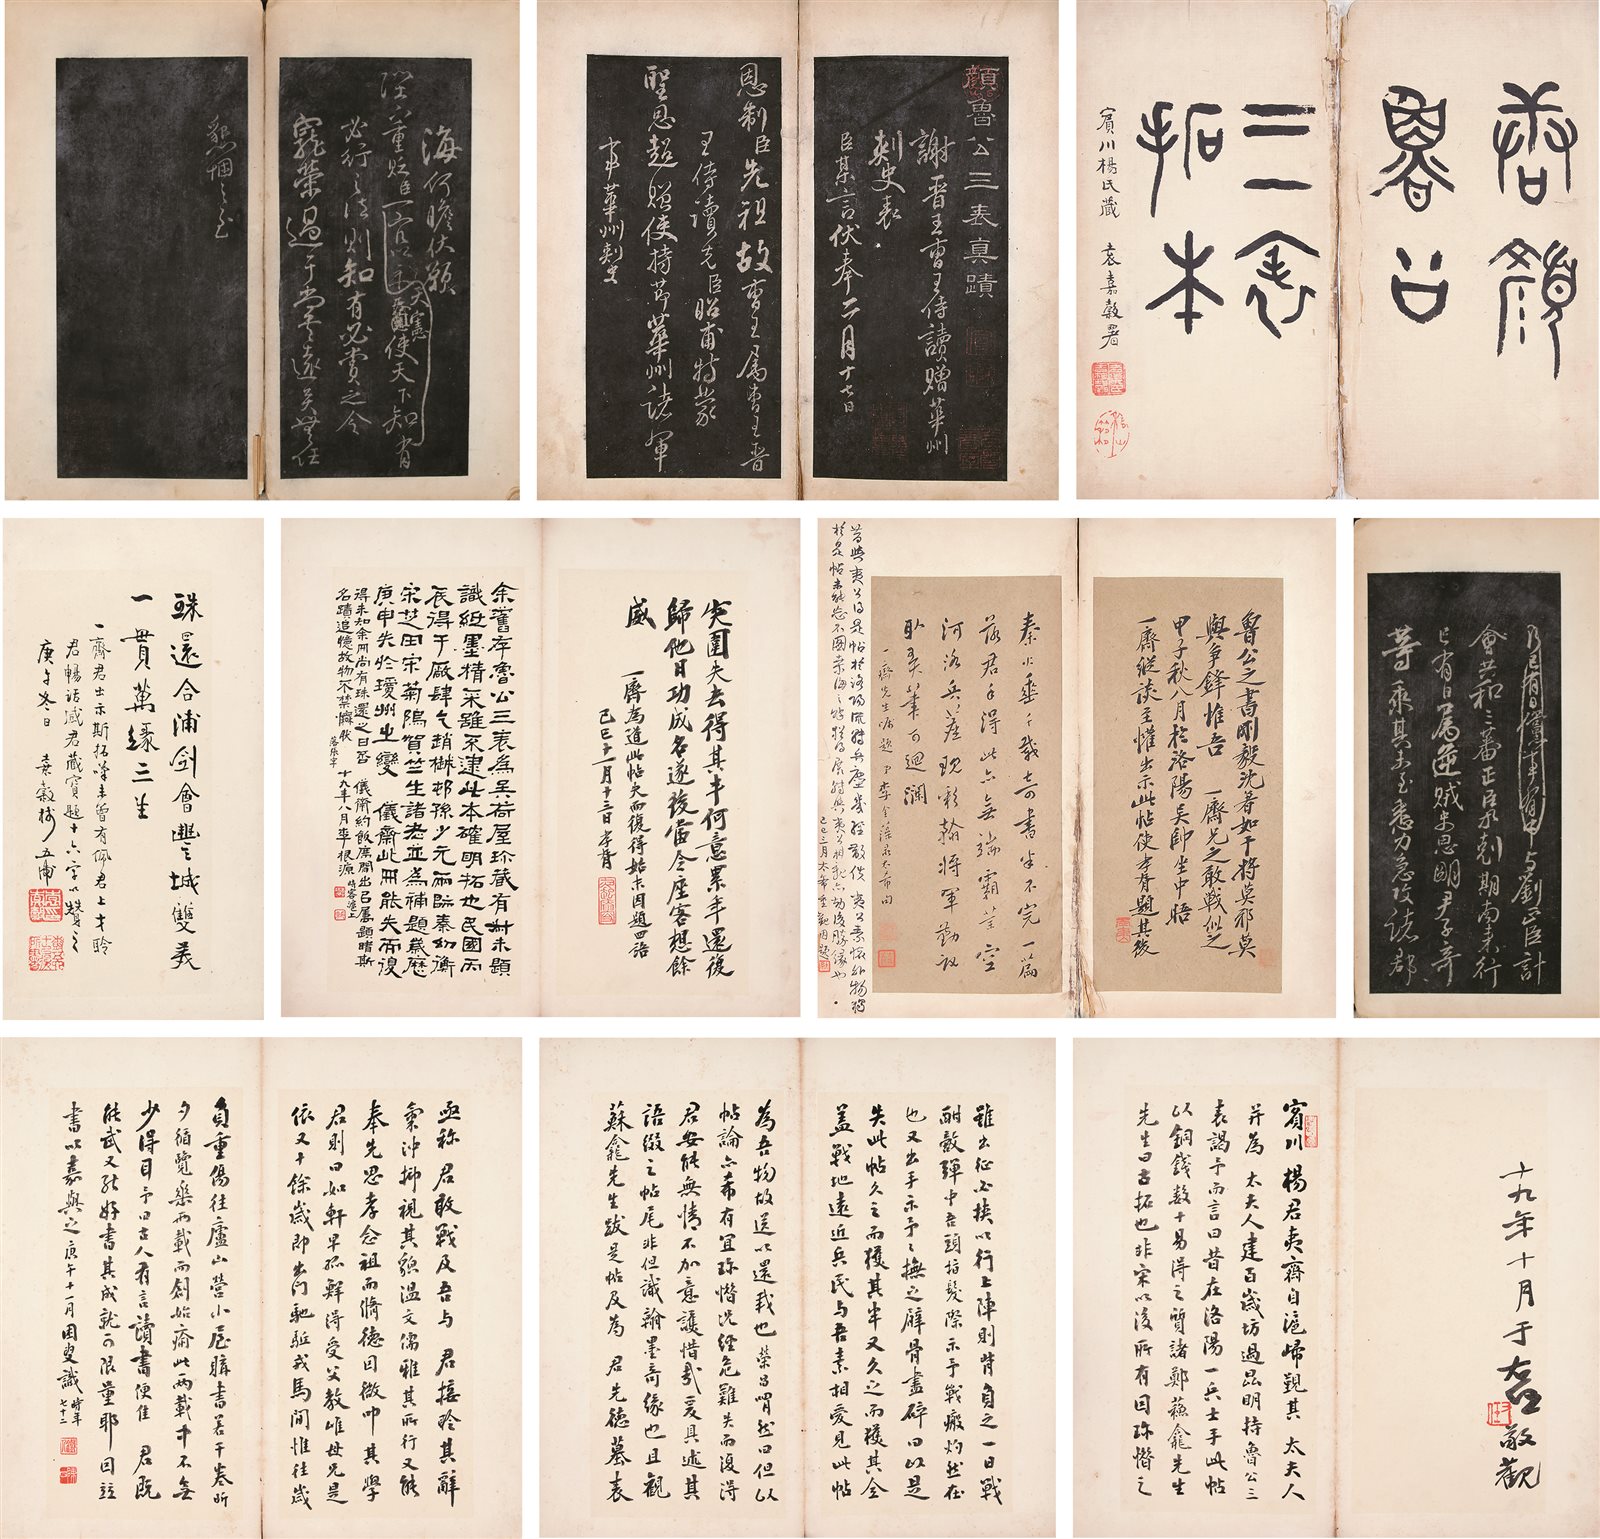 唐顏
魯公
三表
拓本
賓川楊氏藏 袁嘉穀署
顏魯公三表真蹟
謝晉王曹王侍讀贈華州
刺史表
臣某言伏奉二月十七日
恩制臣先祖故曹王屬曹王晉
王侍讀先臣昭甫特蒙
聖恩超贈使持節華州諸軍
事華州刺史
海何瞻伏願
使天下知有
必行之法則知有必賞之令
寵榮過于
懇悃之至
與劉正臣計
會共和二蕃正臣剋期南來行
已有日為逆賊史思明尹子奇
等乘其未至悉力急攻諸郡
魯公之書剛毅沈著如干將莫邪莫
與爭鋒惟吾一齋兄之敢戰似之
甲子秋八月於洛陽吳帥坐中晤
一齋縱談至懽出示此帖使李育題其後
秦火垂千載奇書半不完一篇
落君手得此亦無端霸業空
河洛兵塵現彩翰將軍勤訪
耿奚筆可迴瀾
一齋先生囑題
突圍失去得其半何意累年還後
歸他日功成名遂後當令座客想餘
威
一齋為道此帖失而復得始末因題四語
己巳十一月十三日李育
余舊存魯公三表為吳荷屋珍藏有對未題
識紙墨精采雖不逮此本確明拓也民國丙
辰得于厰肆乞趙樾邨孫少元兩院秦幼衡
宋芝田宋菊隖賀竺生諸老並為補題歲歷
庚申失於瓊州之變 儀齋此冊能失而復
得未知余冊尚有珠還之日否 儀齋約飯席間出已屬題睹斯
名蹟追憶故物不禁憮然 十九年八月李根源
珠還合浦劍會豐城雙美
一貫萬緣三生
一齋君出示斯拓嘆未曾有佩君上才聆
君暢話感君藏寶題十六字以贊之
庚午冬日 袁嘉穀 五華
十九年十月于右任敬觀
賓川楊君夷齋自滬歸覲其 太夫人
并為 太夫人建百歲坊過昆明持魯公三
表謁予而言曰昔在洛陽一兵士手此帖
以銅錢數十易得之質諸鄭蘇龕先生
先生曰古拓也非宋以後所有因珍惜之
雖出征必挾以行上陣則背負之一日戰
酣敵彈中吾頭指髮際示予戰瘢灼然在
也又出手示予予撫之臂骨盡碎曰以是
失此帖久之而獲其半又久之而獲其全
蓋戰地遠近兵民與吾素相愛見此帖
為吾物故送以還我也榮昌喟然曰但以
帖論亦希有宜珍惜況經危難失而復得
君安能無情不加意護惜哉爰具述其
語綴之帖尾非但識翰墨奇緣也且觀
蘇龕先生跋是帖及為 君先德墓表
亟稱君敢戰及吾與 君接聆其辭
氣沖抑視其貌溫文儒雅其所行又能
奉先思孝念祖而脩德因微叩其學
君則曰如軒早孤鮮得受父教唯母兄是
依又十餘歲即出門馳驅戎馬間惟往歲
負重傷往廬山營小屋購書若干卷昕
夕循覽樂兩載而創始癒此兩載中不無
少得耳予曰古人有言讀書便佳 君既
能武又能好書其成就可限量耶因竝
書以嘉與之庚午十一月困叟識 時年七十二